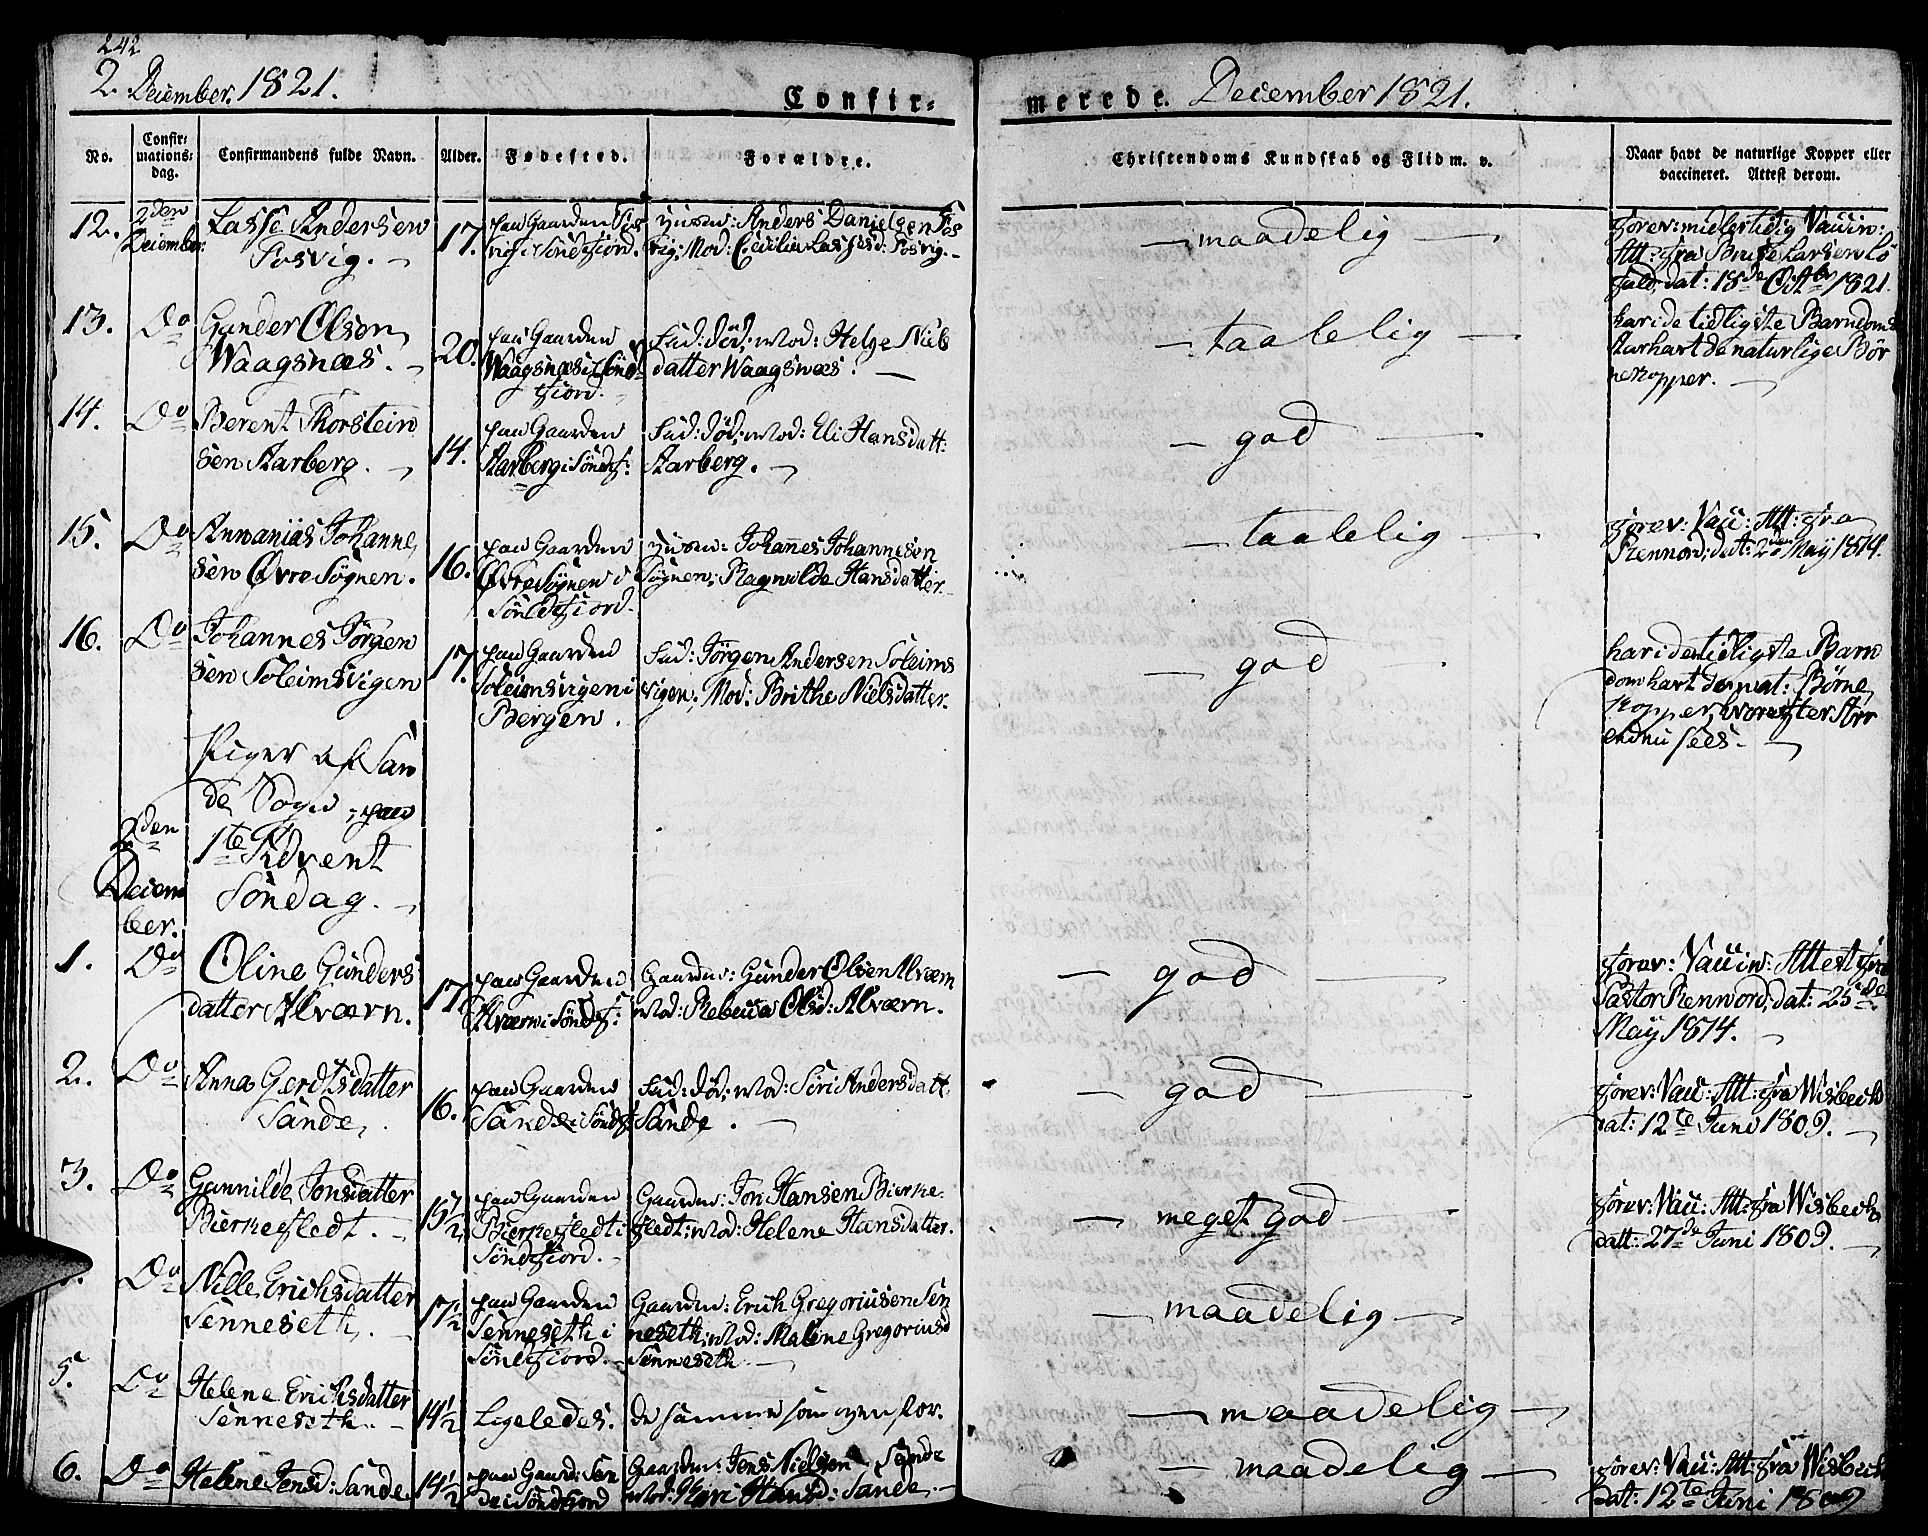 242
2. December. 1821.
Confir-
merede. December 1821.
No.
Confir-
mations-
dag.
Confirmandens fulde Navn.
Alder.
Fødested.
Forældre.
Christendoms Kundskab og Flid m. v.
Naar havt de naturlige Kopper eller
vaccineret. Attest derom.
12. 2den Lasse Andersen 17. paa Gaarden Fos
December. Fosvig.
vig i Söndfiord.
Huusm: Anders Danielsen Fos
vig; Mod: Cecilia Lassesd: Fosvig.
maadelig
forev: midlertidig Vaccin:
Att: fra Larsen
dat: 18de Octbr 1821.
13. Do Gunder Olsen 20. paa Gaarden
Waagsnæs.
Waagsnæs i Sönd-
fiord.
Fad: död; Mod: Helge Niels
datter Waagsnæs.
taalelig
har i de tidligste Barndoms
Aar havt de naturlige Bör
nekopper.
14. Do Berent Thorstein
sen Aarberg. 14.
paa Gaarden
Aarberg i Söndf:
Fad: död; Mod: Eli Hansdatt:
Aarberg.
god
15. Do Annanias Johanne
sen Øvre Sögnen. 16.
paa Gaarden
Øvre Sögnen i
Söndfiord.
Huusm: Johannes Johannesen
Sögnen; Ragnilde Hansdatter.
taalelig
forev: Vacc: Att: fra
Rennord, dat: 2den May 1814.
16. Do Johannes Jörgen
sen Soleimsvigen 17.
paa Gaarden
Soleimsvigen i
Bergen.
Fad: Jörgen Andersen Soleims
vigen; Mod: Brithe Nielsdatter.
god
har i de tidligste Barn
dom havt de nat: Börne
Kopper, hvorefter Arr
endnu sees.
Piger af San
de Sogn, paa
1te Advent
Söndag.
2den
Decem
ber.
1. Do Oline Gunders
datter Alværn. 17.
paa Gaarden
Alværn i Söndf:
Gaardm: Gunder Olsen Alværn
Mod: Rebecca Olsd: Alværn.
god
forev: Vaccin: Attest fra
Pastor Rennord, dat: 25de
May 1814.
2. Do Anna Gerdtsdatter
Sande. 16.
paa Gaarden
Sande i Söndf
Fad: död; Mod: Siri Andersdatt:
Sande.
god
forev: Vacc: Att: fra Wisbech
dat: 12te Juni 1809.
3. Do Gunnilde Jonsdatter
Bierkefledt. 15½
paa Gaarden
Bierkefledt i
Söndfiord.
Gaardm: Jon Hansen Bierke-
fledt; Mod: Helene Hansdatter.
meget god
forev: Vacc: Att: fra Wisbech
datt: 27de Juni 1809.
Do Nille Erichsdatter
Senneseth. 17½
paa Gaarden
Senneseth i
Söndfiord.
Gaardm: Erich Gregoriusen Sen
neseth; Mod: Malene Gregoriusd
Senneseth.
maadelig
5. Do Helene Erichsdatter
Senneseth. 14½
Ligeledes.
de samme som ovenfor.
maadelig
6. Do Helene Jensd: Sande 14½
paa Gaard: San
de i Söndfiord
Gaardm: Jens Nielsen Sande
Mod: Kari Hansd: Sande.
maadelig
forev: Vacc: Att: fra Wisbech
dat: 12te Juni 1809